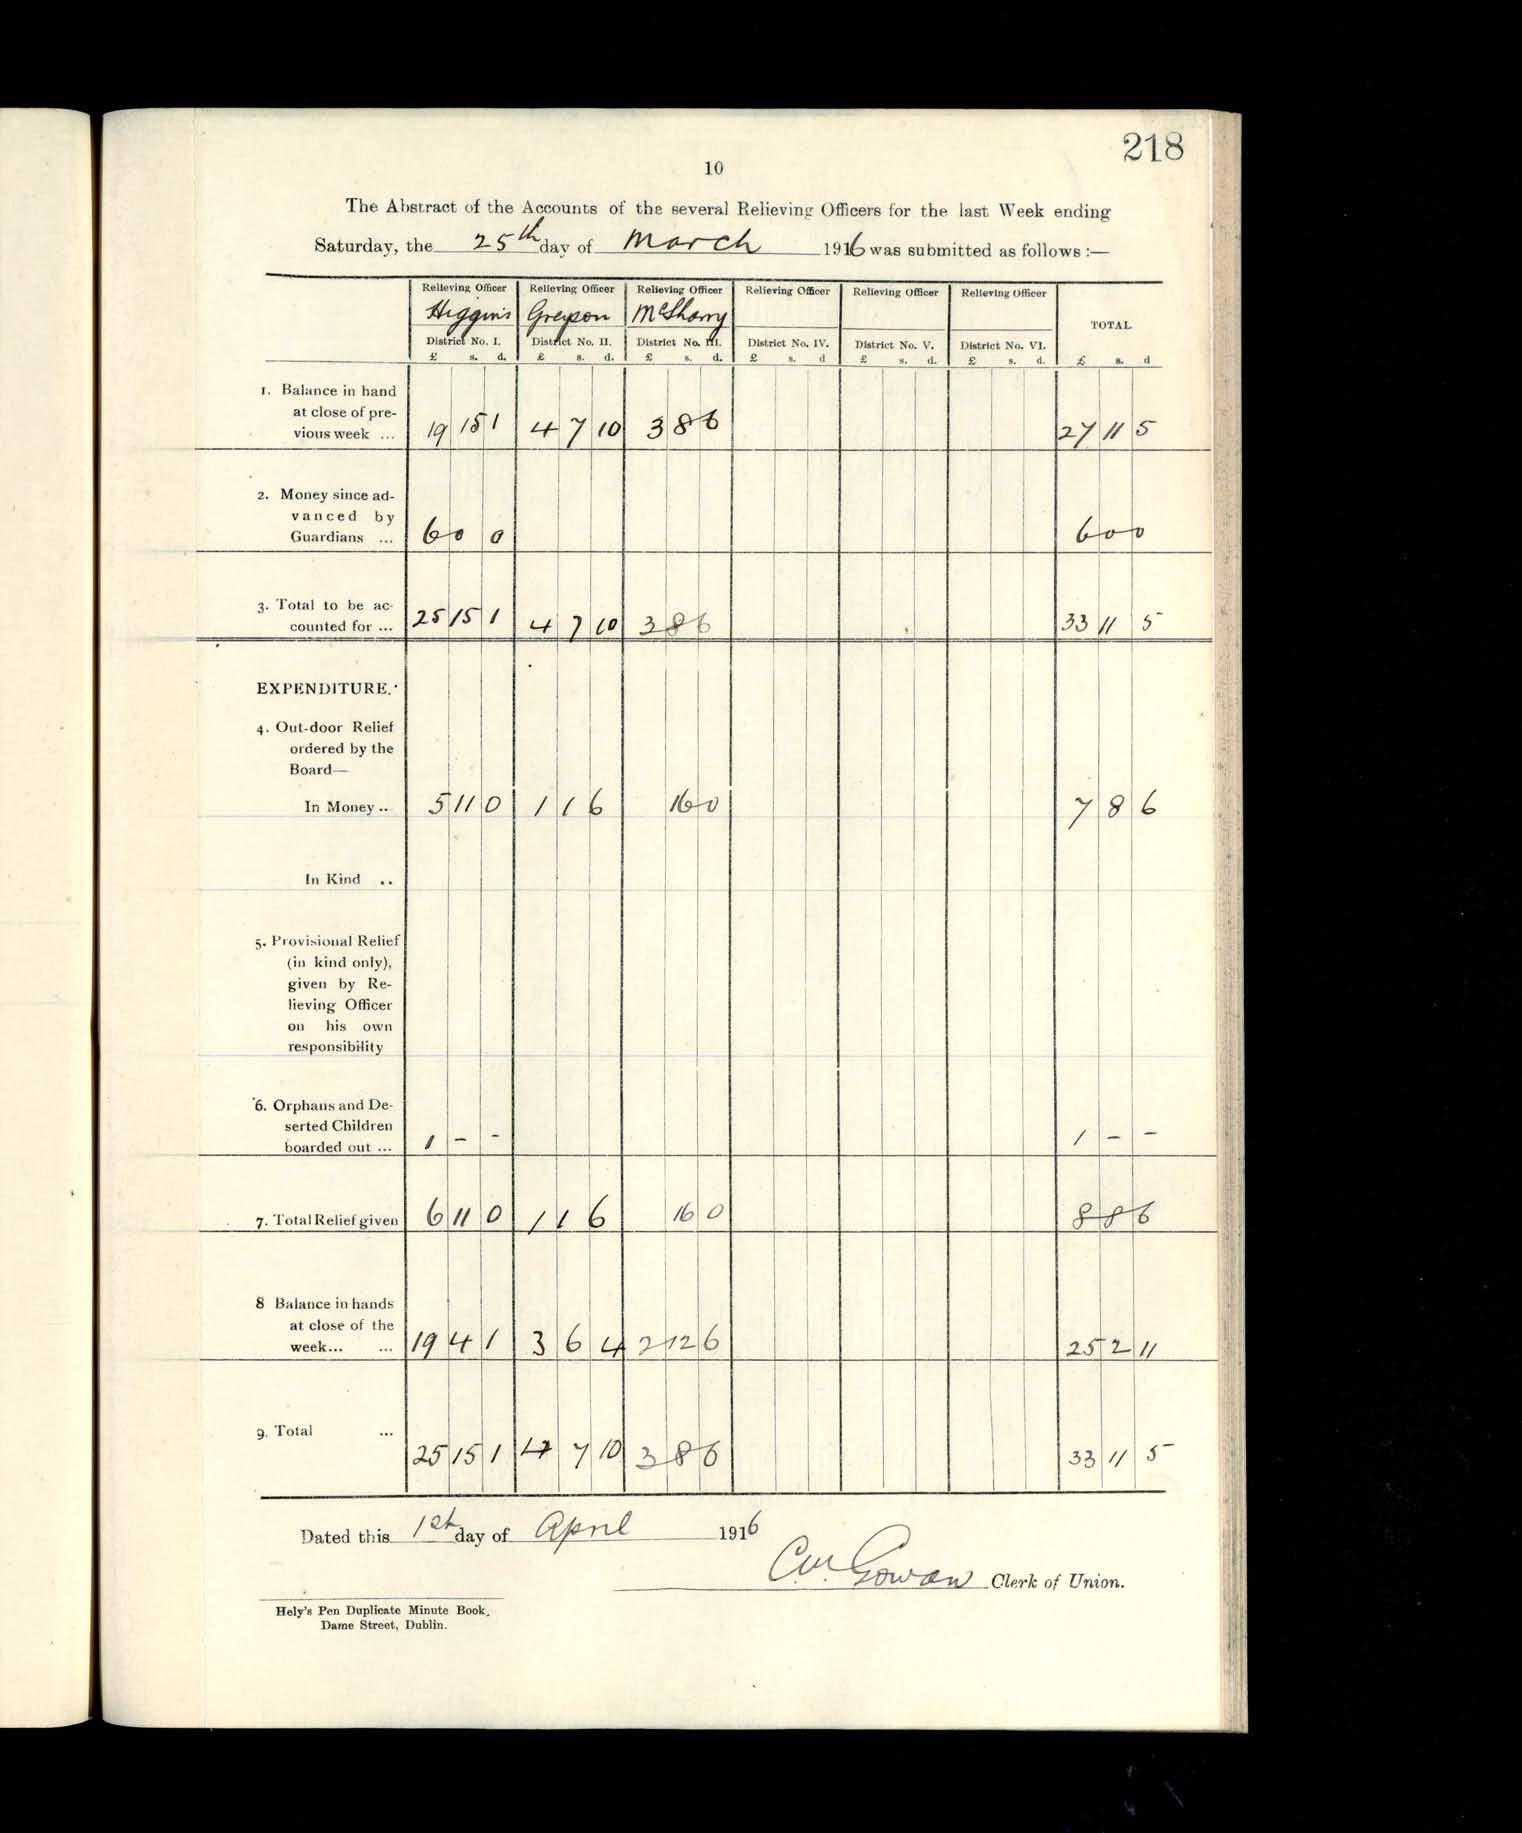 218
10
The Abstract of the Accounts of the several Relieving Officers for the last Week ending
Saturday, the 25th day of March 1916 was submitted as follows :—
Relieving Officer Relieving Officer Relieving Officer Relieving Officer Relieving Officer Relieving Officer
Higgins Greyson McSharry
TOTAL
District No. I. District No. II. District No. III. District No. IV. District No. V. District No. VI.
£ s. d. £ s. d. £ s. d. £ s. d £ s. d. £ s. d. £ s. d
1. Balance in hand
at close of pre-
vious week ... 19 15 1 4 7 10 3 8 6 27 11 5
2. Money since ad-
vanced by
Guardians ... 6 0 0 6 0 0
3. Total to be ac-
counted for ... 25 15 1 4 7 10 3 8 6 33 11 5
EXPENDITURE.
4. Out-door Relief
ordered by the
Board—
In Money .. 5 11 0 1 1 6 16 0 7 8 6
In Kind ..
5. Provisional Relief
(in kind only),
given by Re-
lieving Officer
on his own
responsibility
6. Orphans and De-
serted Children
boarded out ... 1 - - 1 - -
7. Total Relief given 6 11 0 1 1 6 16 0 8 8 6
8 Balance in hands
at close of the
week... ... 19 4 1 3 6 4 2 12 6 25 2 11
9. Total ... 25 15 1 4 7 10 3 8 6 33 11 5
Dated this 1st day of April 1916
Gowan Clerk of Union.
Hely's Pen Duplicate Minute Book,
Dame Street, Dublin.